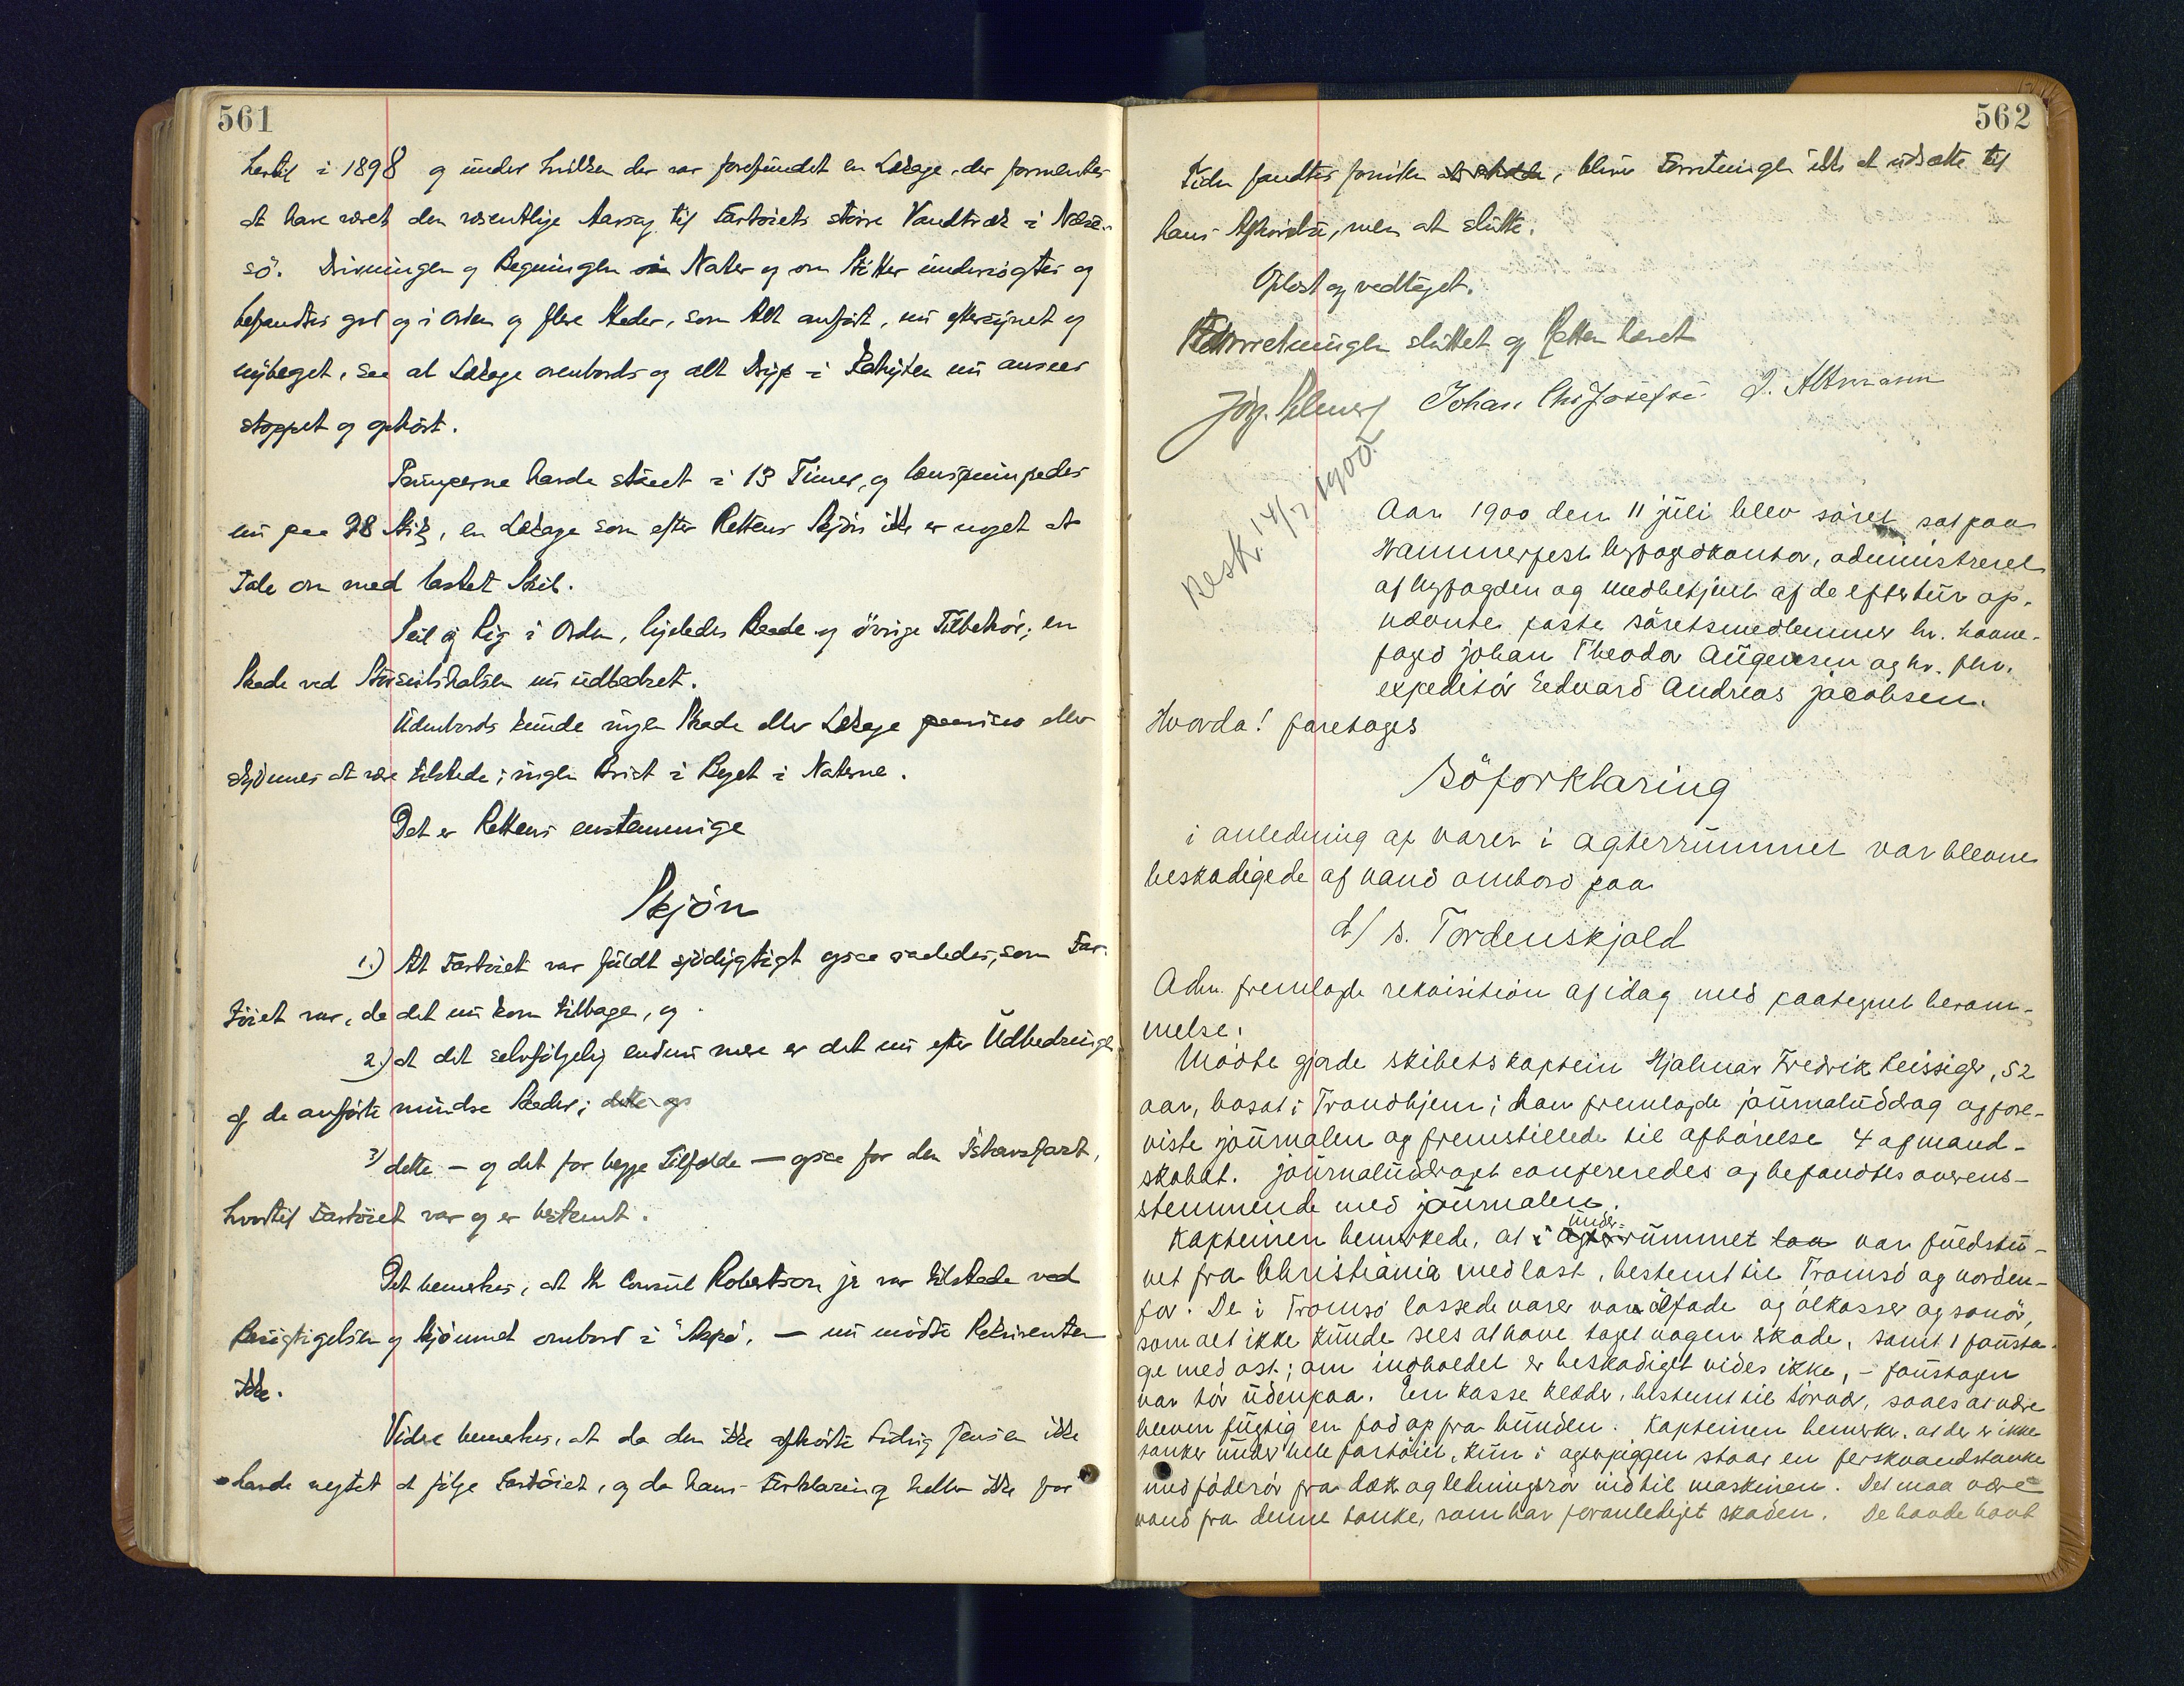 561
hertil i 1898 og under hvilken der var forefundet en Lækage, der formentes
at have været den væsentlige Aarsag til Fartøiets større Vandtræk i Næse-
sö. Drivningen og Begningen Nater og om Støtter undersøgtes og
befandtes god og i Orden og flere Steder, som Alt anført, nu eftersynet og
nybeget, saa at Lækage ovenbords og alt Dryp i Kahytten nu ansees
stoppet og ophørt.
Pumperne havde staaet i 13 Timer, og lænspumpedes
nu paa 98 Stik, en Lækage som efter Rettens Skjön ikke er noget at
tale om med lastet Skib.
Seil og Rig i Orden, ligeledes Baade og övrige Tilbehör; en
Skade ved nu udbedret.
Udenbords kunde ingen Skade eller Lækage paavises eller
skjönnes at være tilstede; ingen Brist i Beget i Naterne.
Det er Rettens enstemmige
Skjön
1.) At Fartöiet var fuldt sjödygtigt ogsaa saaledes, som Far-
töiet var, da det nu kom tilbage, og
2.) at det selvfölgelig endnu mere er det nu efter Udbedringen
af de anförte mindre Skader; dette og
3) dette - og det for begge Tilfælde - ogsaa for den Ishavsfart,
hvortil Fartöiet var og er bestemt.
Det bemerkes, at Hr Consul Robertson jr var tilstede ved
Besigtigelsen og Skjönnet ombord i - nu mödte Rekvirenten
ikke.
Videre bemerkes, at da den ikke afhörte Ludvig Jensen ikke
havde negtet at fölge Fartöiet, og da hans Forklaring heller ikke for
562
Tiden fandtes fornöden, bliver Forretningen ikke at udsætte til
hans Afhörelse, men at slutte.
Oplæst og vedtaget.
Forretningen sluttet og Retten hævet
Johan Chr Josefsen J. Altmann
Besk. 14/7 1900.
Aar 1900 den 11 juli blev söret sat paa
Hammerfest byfogdkontor, administreret
af byfogden og medbetjent af de eftertur op-
nævnte faste söretsmedlemmer hr. havne-
foged johan Theodor Augensen og hr. fhv.
expeditör Edvard Andreas jacobsen.
Hvorda! foretages
Söforklaring
i anledning af varer i agterrummet var blevne
beskadigede af vand ombord paa
d/s. Tordenskjold
Adm. fremlagde rekvisition af idag med paategnet beram-
melse.
Mödte gjorde skibets kaptein Hjalmar Fredrik Reissiger, 52
aar, bosat i Trondhjem; han fremlagde journaludrag og fore-
viste journalen og fremstillede til afhörelse 4 af mand-
skabet. journaludraget confereredes og befandtes overens-
stemmende med journalen.
Kapteinen bemerkede, at i agter under-rummet laa var fuldstu-
vet fra Christiania med last, bestemt til Tromsö og norden-
for. De i Tromsö lossede varer var ölfade og ölkasser og
som alt ikke kunde sees at have taget nogen skade, samt 1 fousta-
ge med ost; om indholdet er beskadiget vides ikke, - foustagen
var tör udenpaa. En kasse klæder, bestemt til saaes at være
bleven fugtig en fod op fra bunden. Kapteinen bemerker, at der er ikke
tanker under hele fartöiet, kun i agterpiggen staar en ferskvandstanke
med föderör fra dæk og ledningsrör ind til maskinen. Det maa være
vand fra denne tanke, som har foranlediget skaden. De havde havt